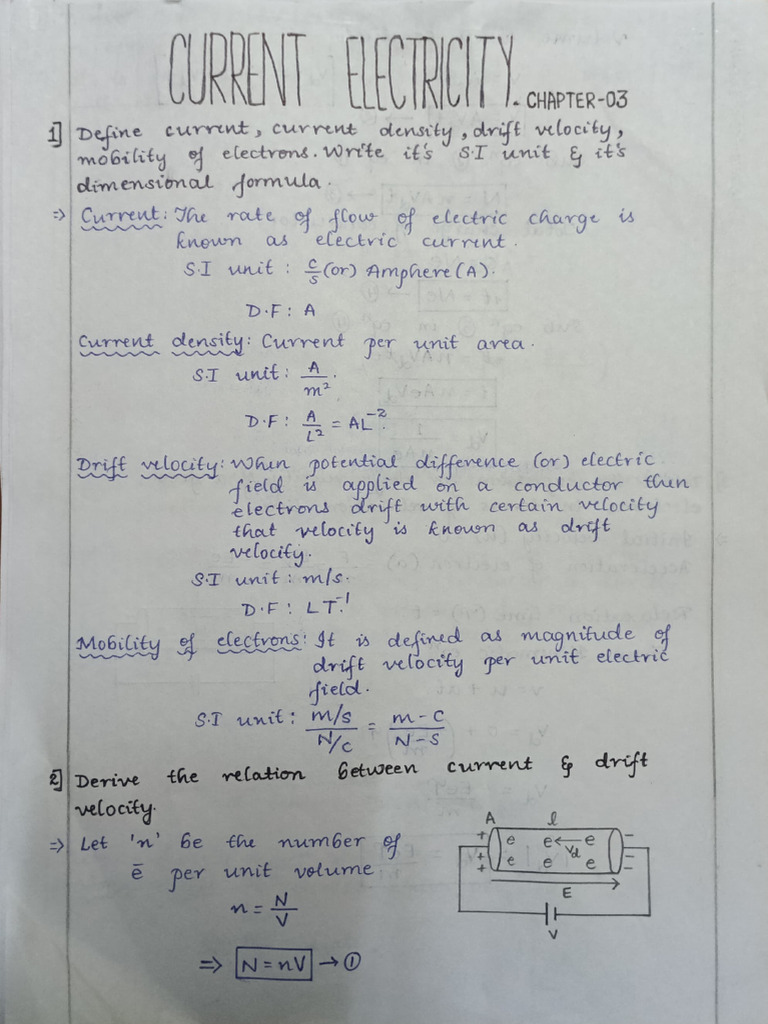 CURRENT ELECTRICITY. CHAPTER-03
1] Define current, current density, drift velocity,
mobility of electrons. Write it's S.I unit & it's
dimensional formula.
⇒ Current: The rate of flow of electric charge is
known as electric current.
S.I unit : C/s (or) Amphere (A).
D.F : A
Current density: Current per unit area.
S.I unit : A/m².
D.F : A/L² = AL⁻².
Drift velocity: When potential difference (or) electric
field is applied on a conductor then
electrons drift with certain velocity
that velocity is known as drift
velocity.
S.I unit : m/s.
D.F : LT⁻¹.
Mobility of electrons: It is defined as magnitude of
drift velocity per unit electric
field.
S.I unit : (m/s)/(N/C) = (m-C)/(N-S)
2] Derive the relation between current & drift
velocity.
⇒ Let 'n' be the number of
ē per unit volume
n = N/V
⇒ N = nV → ①
A l
+ e e ← e −
+ Vd −
+ e e e −
E
V